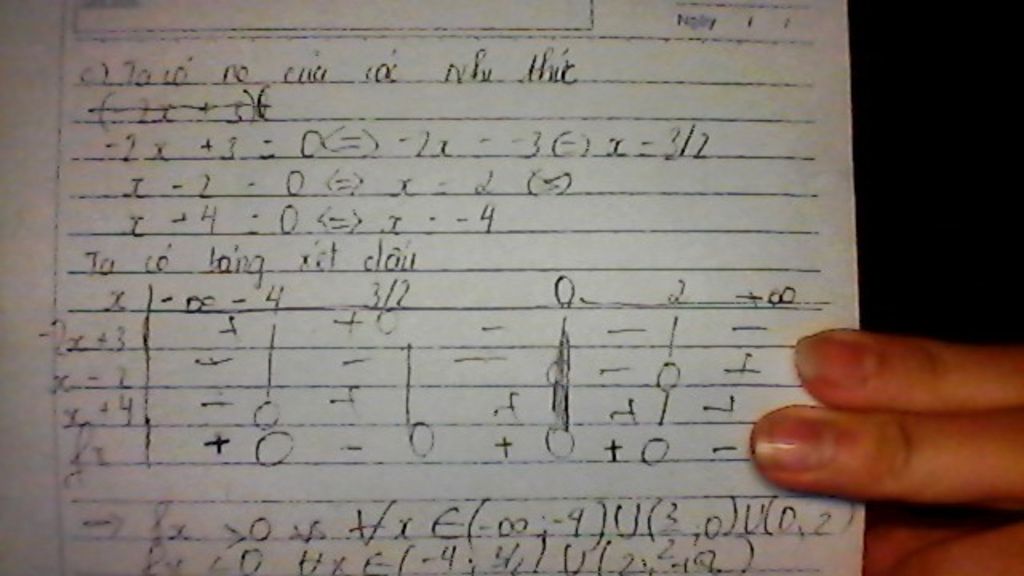 Ngày / /
c) Ta có no của các nhị thức
(-2x + 3)(
-2x + 3 = 0 <=> -2x = -3 <=> x = 3/2
x - 2 = 0 <=> x = 2 <=>
x + 4 = 0 <=> x = -4
Ta có bảng xét dấu
x | -∞ -4 3/2 0 2 +∞
-2x+3 | + | + 0 - | - | -
x-2 | - | - | - | - 0 +
x+4 | - 0 + | + | + | +
fx | + 0 - 0 + 0 + 0 -
→ fx >0 ∀x ∈ (-∞; -4) U (3/2, 0) U (0, 2)
fx < 0 ∀x ∈ (-4; 3/2) U (2; +∞)